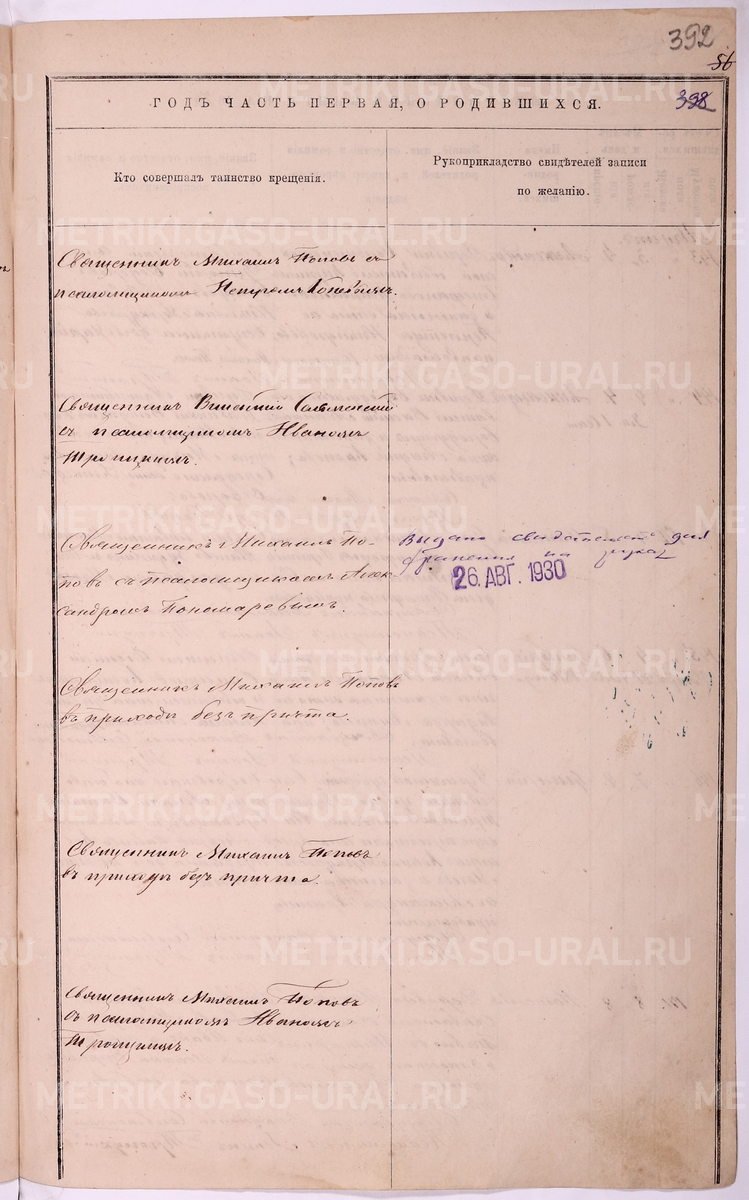 392
56
398
ГОДЪ ЧАСТЬ ПЕРВАЯ, О РОДИВШИХСЯ.
Кто совершалъ таинство крещенія.
Рукоприкладство свидѣтелей записи
по желанію.
Священникъ Михаилъ Поповъ съ
псаломщикомъ Петромъ
Священникъ Викентій
съ псаломщикомъ Иваномъ
Троицкимъ.
Священникъ Михаилъ По-
повъ съ псаломщикомъ Алек-
сандромъ Пономаревымъ.
Выдано свидетельст для
26. АВГ. 1930
Священникъ Михаилъ Поповъ
въ приходѣ безъ причта.
Священникъ Михаилъ Поповъ
въ приходѣ безъ причта.
Священникъ Михаилъ Поповъ
съ псаломщикомъ Иваномъ
Троицкимъ.
METRIKI.GASO-URAL.RU